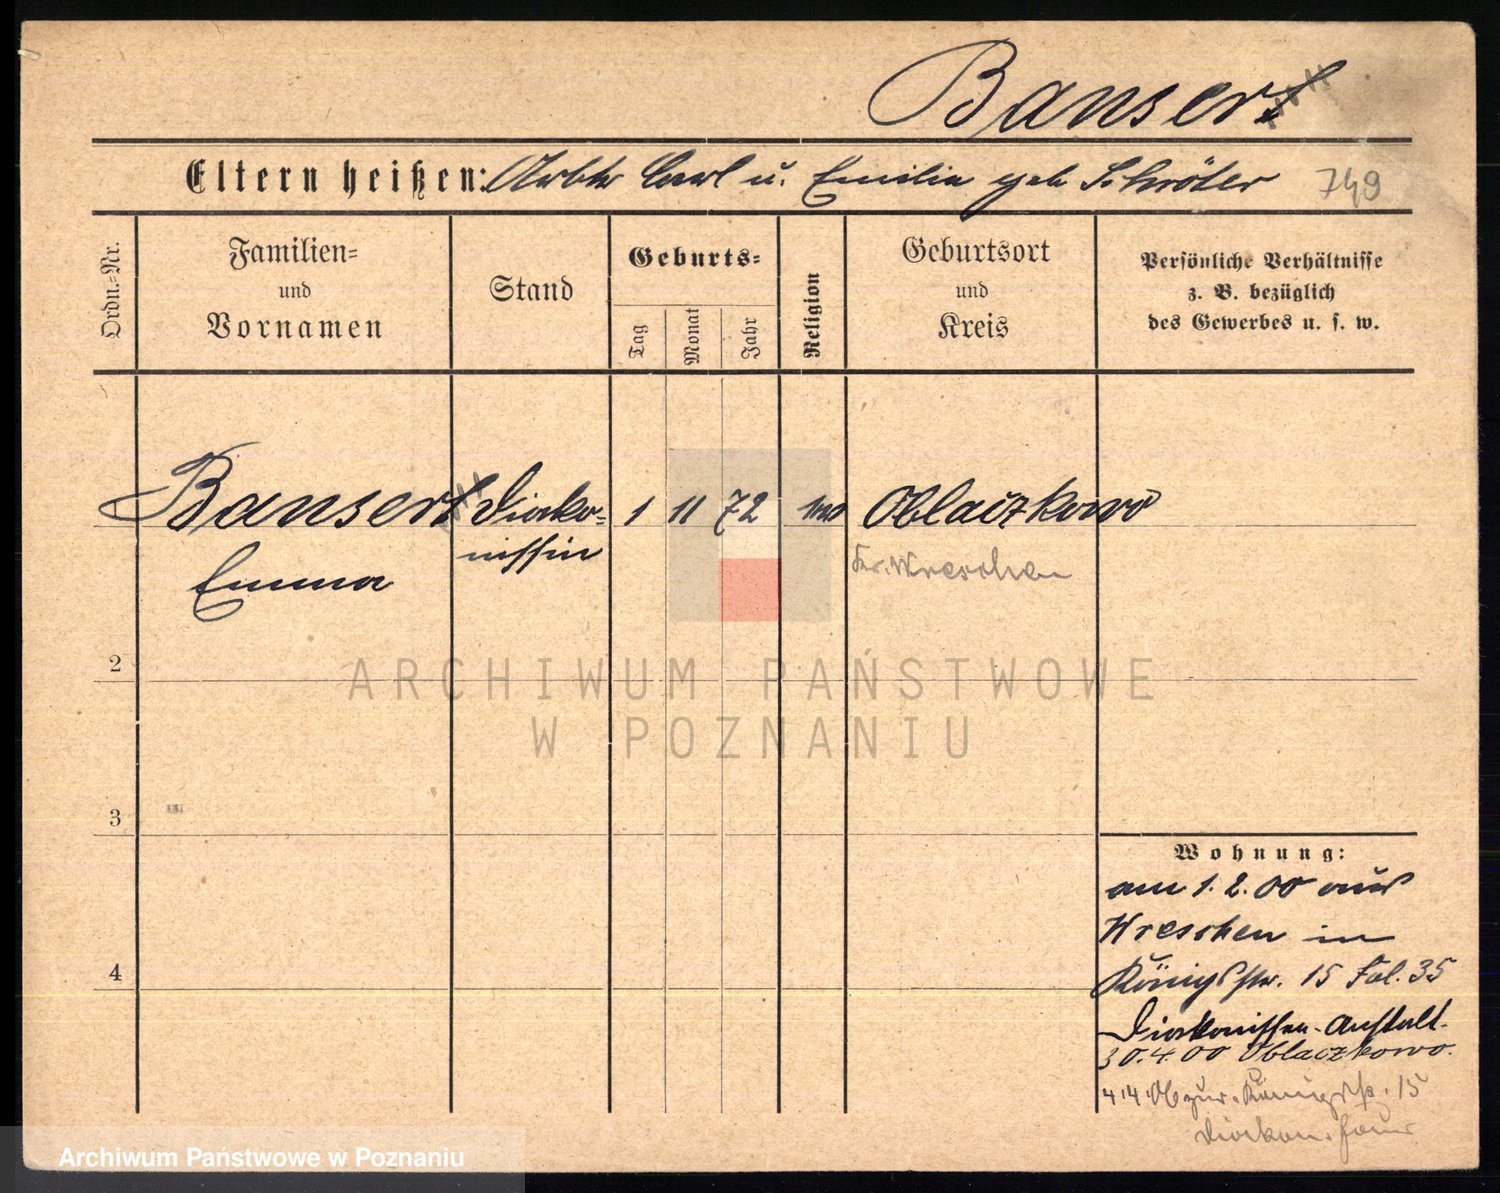 Bansert
Eltern heißen: Arbtr Carl u. Emilie geb Schröter 749
Ordn.-Nr.
Familien-
und
Vornamen
Stand
Geburts-
Tag
Monat
Jahr
Religion
Geburtsort
und
Kreis
Persönliche Verhältnisse
z. B. bezüglich
des Gewerbes u. s. w.
Bansert Diako- 1 11 72 Oblaczkowo
nissin
Emma
Kr. Wreschen
2
3
4
Wohnung:
am 1. 2. 00 aus
Wreschen in
Königstr. 15 Fol. 35
Diakonissen-Anstalt.
30.4.00 Oblaczkowo.
zur. Königstr. 15
Diakon.
ARCHIWUM PAŃSTWOWE
W POZNANIU
Archiwum Państwowe w Poznaniu